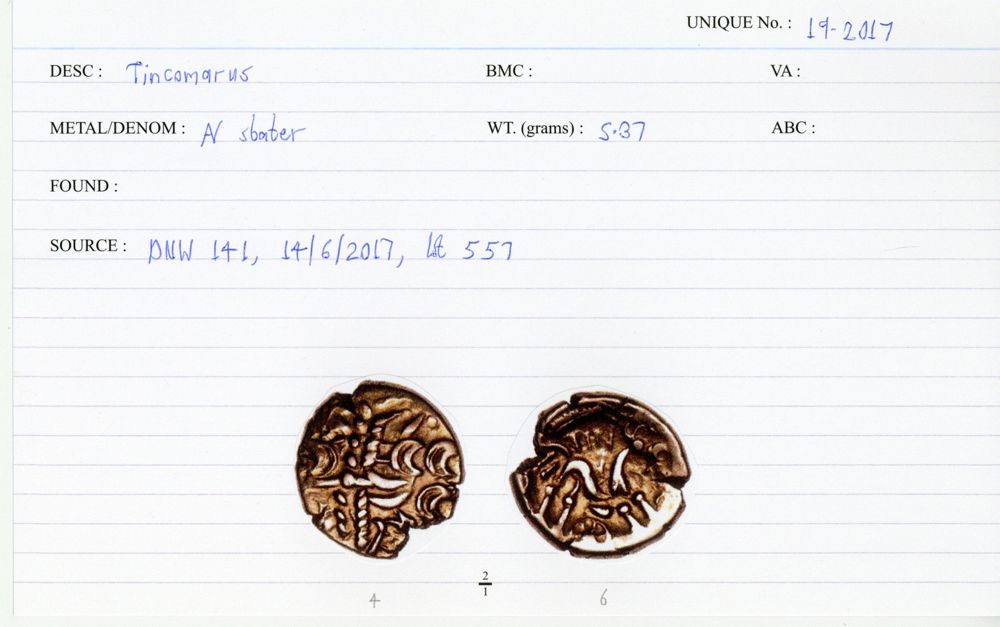 UNIQUE No. : 19-2017
DESC : Tincomarus BMC : VA :
METAL/DENOM : AV stater WT. (grams) : 5.37 ABC :
FOUND :
SOURCE : DNW 141, 14/6/2017, lot 557
2
1
4 6